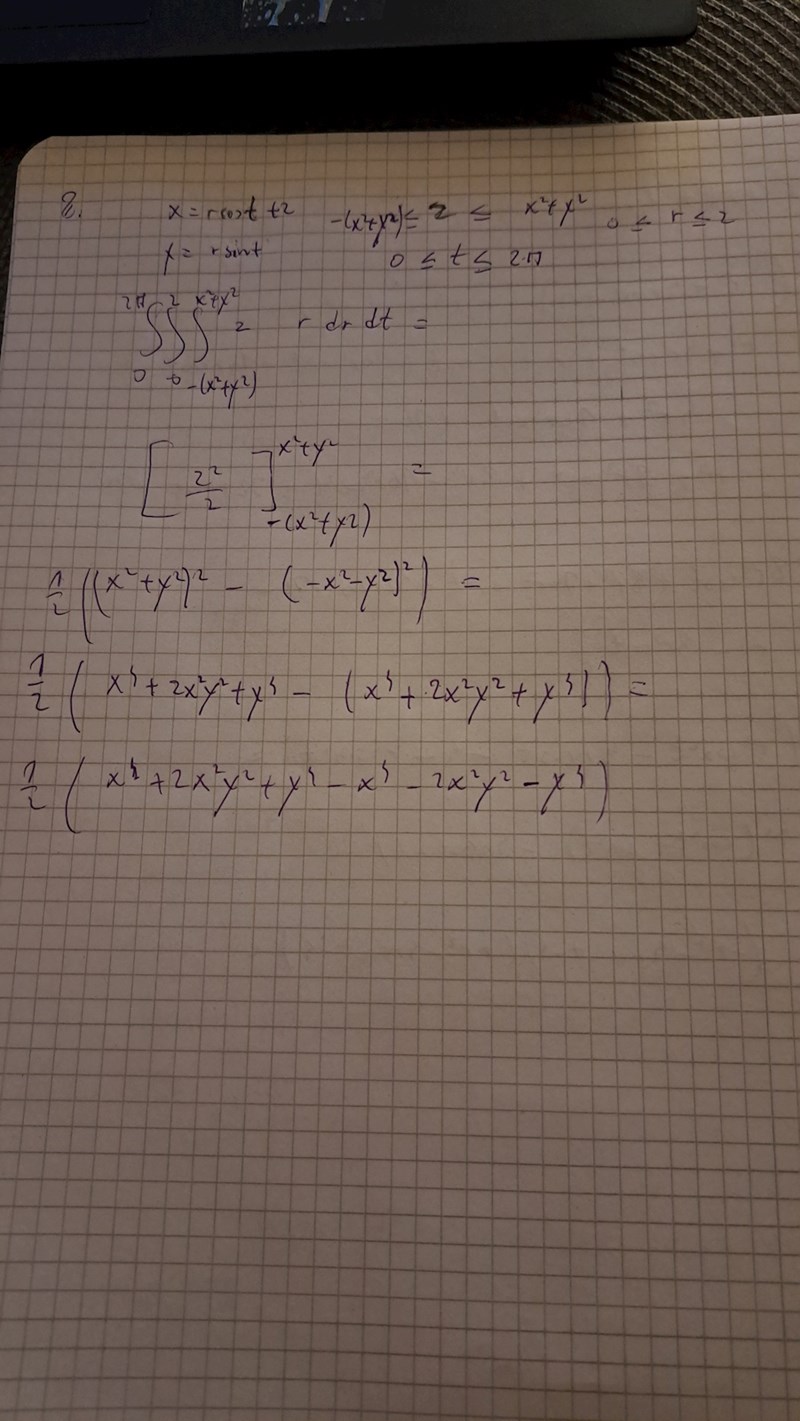 8. x = r cos t + 2 -(x²+y²) ≤ z ≤ x²+y² 0 ≤ r ≤ 2
y = r sin t 0 ≤ t ≤ 2π
2π 2 x²+y²
∫∫∫ z r dr dt =
0 0 -(x²+y²)
[ z²/2 ] x²+y² =
-(x²+y2)
1/2 ((x²+y²)² - (-x²-y²)²) =
1/2 ( x⁴ + 2x²y² + y⁴ - (x⁴ + 2x²y² + y⁴)) =
1/2 ( x⁴ + 2x²y² + y⁴ - x⁴ - 2x²y² - y⁴)